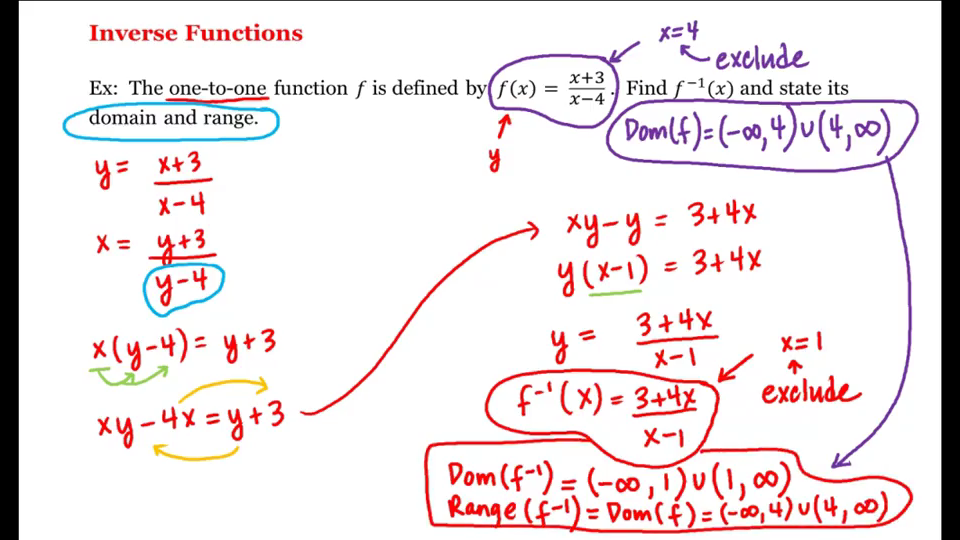 Inverse Functions
x=4
exclude
Ex: The one-to-one function f is defined by f(x) = x+3/x−4. Find f⁻¹(x) and state its
domain and range.
Dom(f)=(-∞,4)∪(4,∞)
y
y = x+3/x-4
x = y+3/y-4
x(y-4)= y+3
xy-4x=y+3
xy-y = 3+4x
y(x-1) = 3+4x
y = 3+4x/x-1
x=1
exclude
f⁻¹(x) = 3+4x/x-1
Dom(f⁻¹)=(-∞,1)∪(1,∞)
Range(f⁻¹)=Dom(f)=(-∞,4)∪(4,∞)